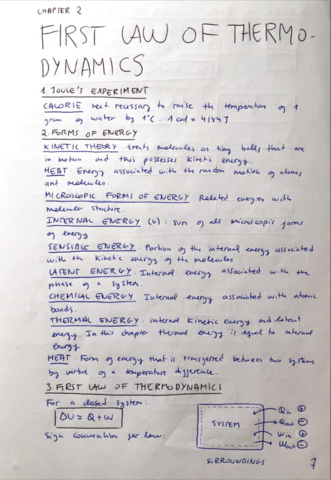 CHAPTER 2
FIRST LAW OF THERMO-
DYNAMICS
1. JOULE'S EXPERIMENT
CALORIE heat necessary to raise the temperature of 1
gram of water by 1°C. 1 cal = 4,184 J
2. FORMS OF ENERGY
KINETIC THEORY treats molecules as tiny balls that are
in motion and thus possesses kinetic energy.
HEAT Energy associated with the random motion of atoms
and molecules.
MICROSCOPIC FORMS OF ENERGY Related energies with
molecular structure.
INTERNAL ENERGY (U): sum of all microscopic forms
of energy
SENSIBLE ENERGY: Portion of the internal energy associated
with the kinetic energy of the molecules
LATENT ENERGY: Internal energy associated with the
phase of a system.
CHEMICAL ENERGY Internal energy associated with atomic
bonds.
THERMAL ENERGY: internal kinetic energy and latent
energy. In this chapter thermal energy is equal to internal
energy.
HEAT: Form of energy that is transferred between two systems
by virtue of a temperature difference.
3. FIRST LAW OF THERMODYNAMICS
For a closed system:
DU = Q + W
Sign convention for law:
SYSTEM
Qin +
Qout -
Win +
Wout -
SURROUNDINGS
7